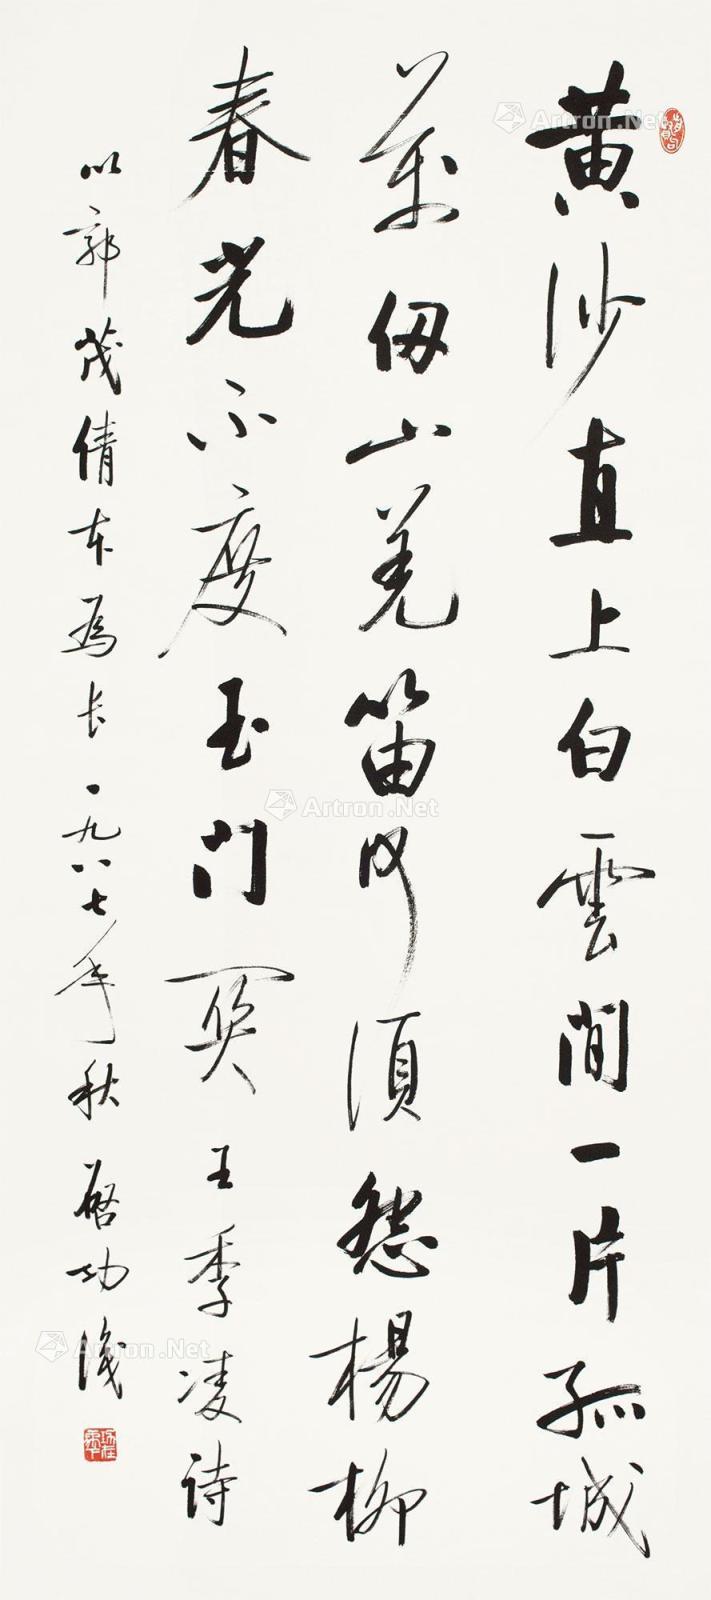 黄沙直上白雲間一片孤城
萬仞山羌笛何須怨楊柳
春光不度玉门関王季凌诗
以郭茂倩本爲长一九八七年秋啓功識
Artron.Net
Artron.Net
Artron.Net